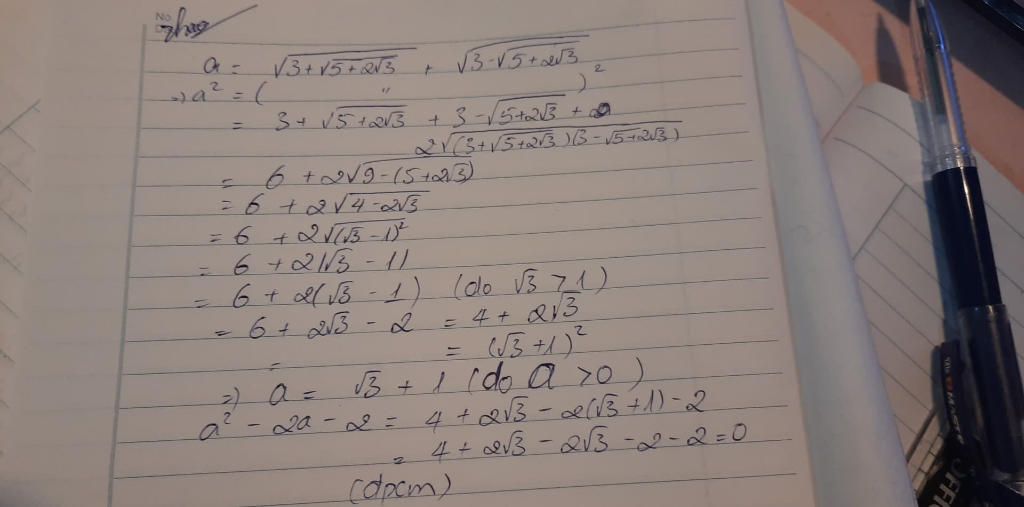 No
a = √(3+√(5+2√3)) + √(3-√(5+2√3))
=> a² = ( " )²
= 3 + √(5+2√3) + 3 - √(5+2√3) +
2√((3+√(5+2√3))(3-√(5+2√3)))
= 6 + 2√(9-(5+2√3))
= 6 + 2√(4-2√3)
= 6 + 2√((√3-1)²)
= 6 + 2|√3 - 1|
= 6 + 2(√3 - 1) (do √3 > 1)
= 6 + 2√3 - 2 = 4 + 2√3
= = (√3+1)²
=> a = √3 + 1 (do a > 0)
a² - 2a - 2 = 4 + 2√3 - 2(√3+1) - 2
= 4 + 2√3 - 2√3 - 2 - 2 = 0
(dpcm)